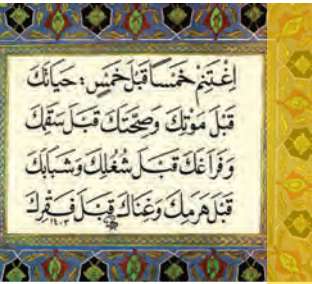 اِغْتَنِمْ خَمْسًا قَبْلَ خَمْسٍ: حَيَاتَكَ
قَبْلَ مَوْتِكَ وَصِحَّتَكَ قَبْلَ سَقَمِكَ
وَفَرَاغَكَ قَبْلَ شُغْلِكَ وَشَبَابَكَ
قَبْلَ هَرَمِكَ وَغِنَاكَ قَبْلَ فَقْرِكَ
١٤٠٣